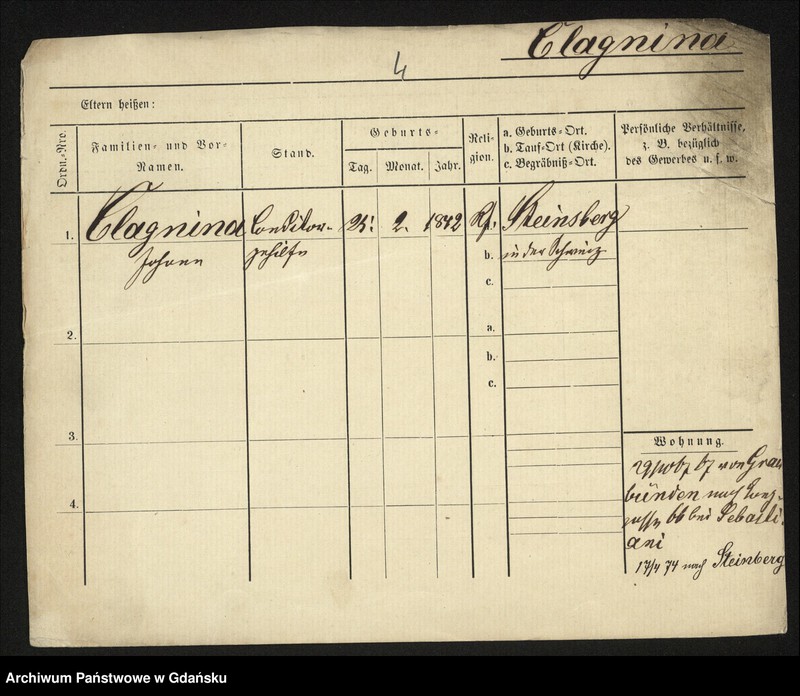 Clagnina
4
Eltern heißen:
Ordn.-Nro.
Familien- und Vor-
Namen.
Stand.
Geburts-
Tag.
Monat.
Jahr.
Reli-
gion.
a. Geburts-Ort.
b. Tauf-Ort (Kirche).
c. Begräbniß-Ort.
Persönliche Verhältnisse,
z. B. bezüglich
des Gewerbes u. s. w.
1.
Clagnina
Johann
Conditor-
gehilfe
25.
2.
1842
Rf.
Steinsberg
b.
in der Schweiz
c.
2.
a.
b.
c.
3.
4.
Wohnung.
von Grau
bünden nach Lang-
gasse 66 bei Sebasti
ani
17/4 74 nach Steinberg
Archiwum Państwowe w Gdańsku